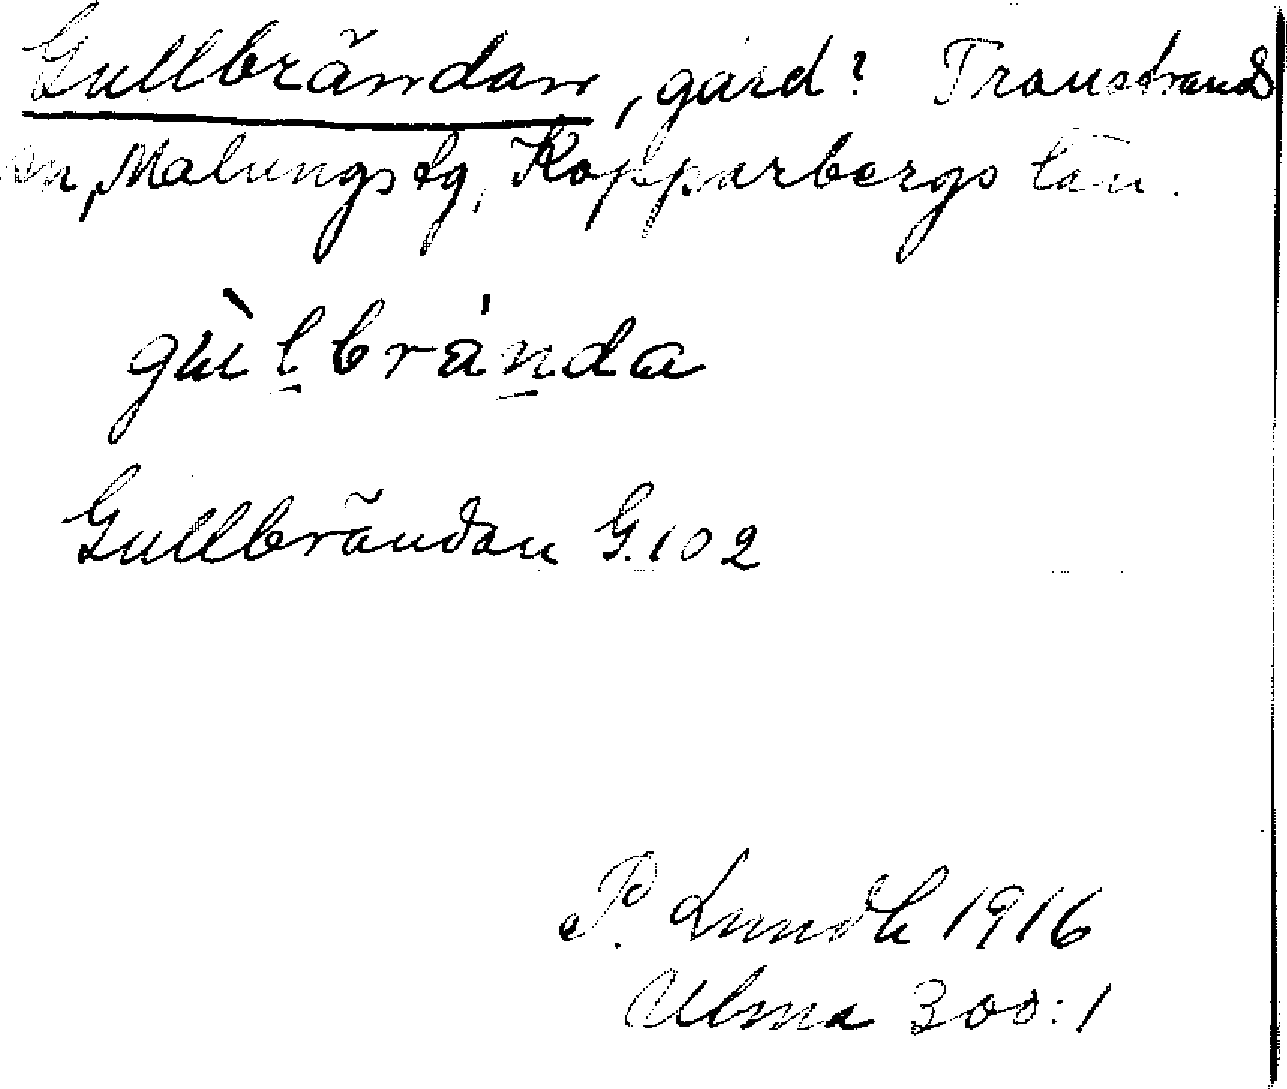 Gullbrändan, gård? Transtrands
sn, Malungs tg, Kopparbergs län.
gùl̠brán̠da
Gullbrändan G. 102
P. Lundh 1916
Ulma 300:1